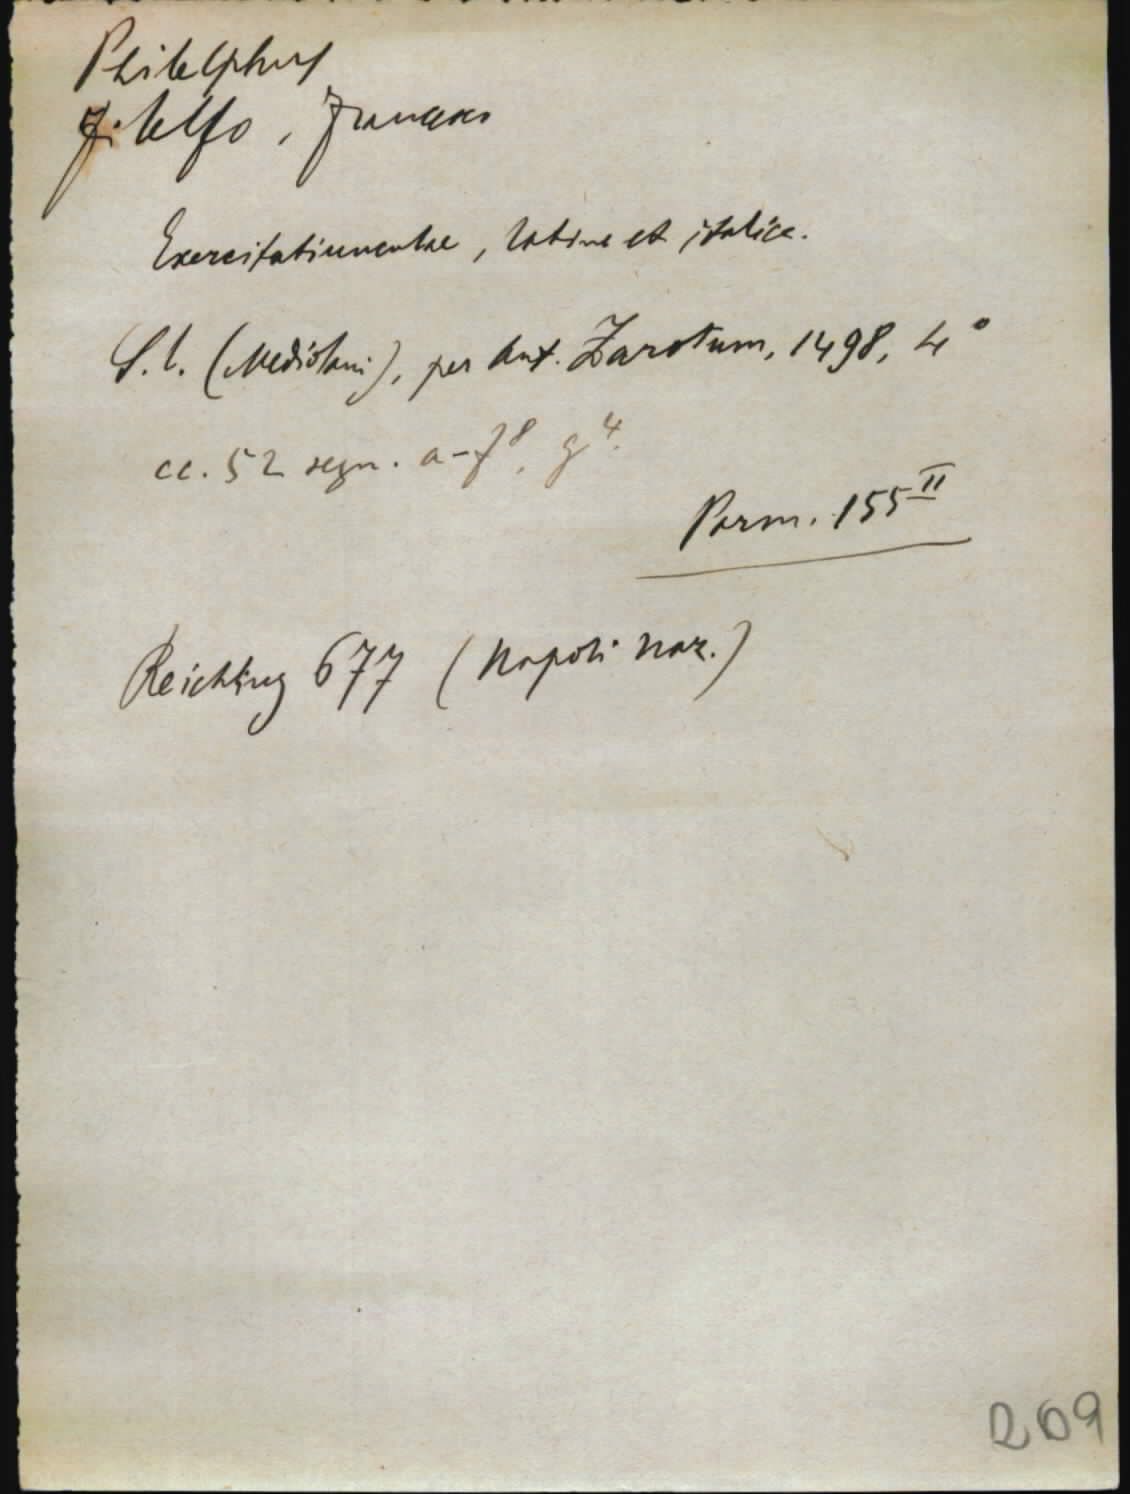 Philelphus
Filelfo, Francesco
Exercitatiunculae, latine et italice.
S. l. (Mediolani), per Ant. Zarotum, 1498, 4°
cc. 52 segn. a-f⁸, g⁴.
Parm. 155ᴵᴵ
Reichling 677 (Napoli naz.)
209